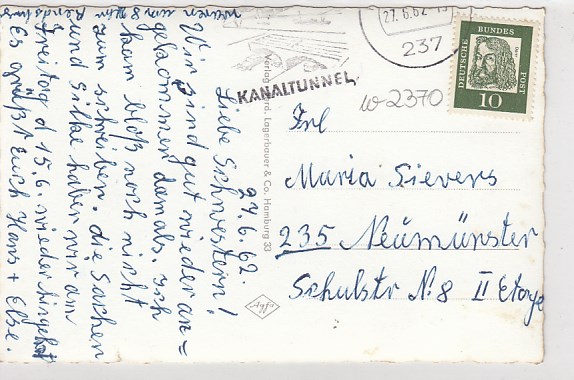 24.6.62.
Liebe Schwestern!
Wir sind gut wieder an=
gekommen damals. Ich
kam bloß noch nicht
zum schreiben. die Sachen
und Silke haben wir am
Freitag d 15.6. wieder hingeholt
Es grüßt Euch Hans + Else.
waren um 8 Uhr Rendsburg
Verlag Ferd. Lagerbauer & Co. Hamburg 33
KANALTUNNEL
27.6.62
237
W 2370
DEUTSCHE BUNDESPOST
10
Frl
Maria Sievers
235 Neumünster
Schulstr N. 8 II Etage